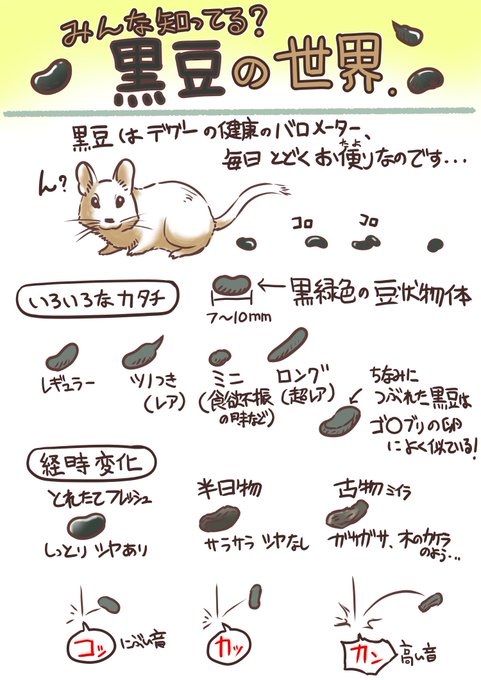 みんな知ってる?
黒豆の世界.
黒豆はデグーの健康のバロメーター、
毎日とどくお便りなのです...
たよ
ん?
コロ
コロ
いろいろなカタチ
←黒緑色の豆状物体
7〜10mm
レギュラー
ツノつき
(レア)
ミニ
(食欲不振
の時など)
ロング
(超レア)
ちなみに
つぶれた黒豆は
ゴ〇ブリの卵
によく似ている!
経時変化
とれたてフレッシュ
しっとりツヤあり
半日物
サラサラツヤなし
古物ミイラ
ガサガサ、木のカケラ
のよう...
コッ
にぶい音
カッ
カン
高い音